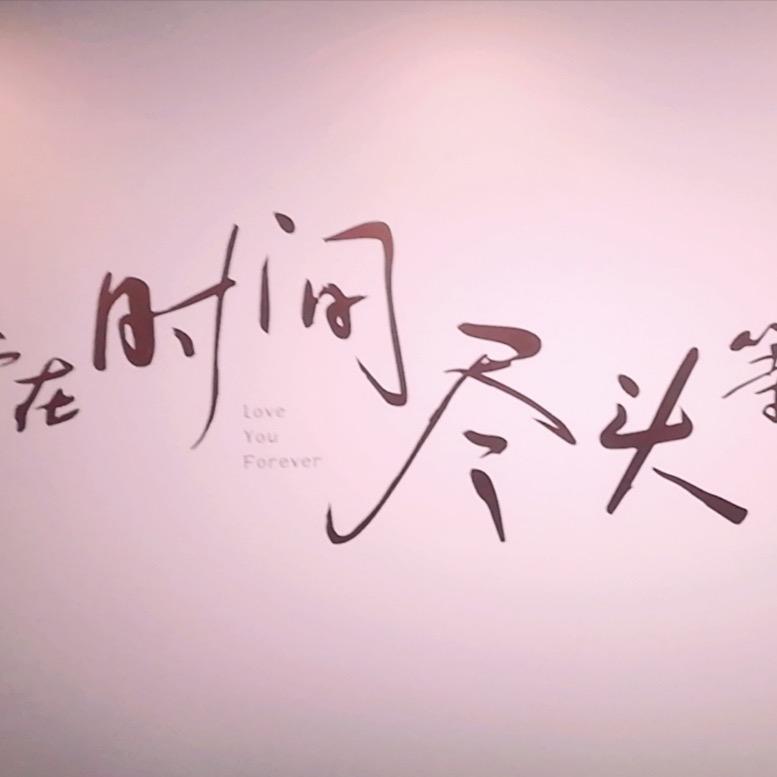 在时间尽头等
Love
You
Forever